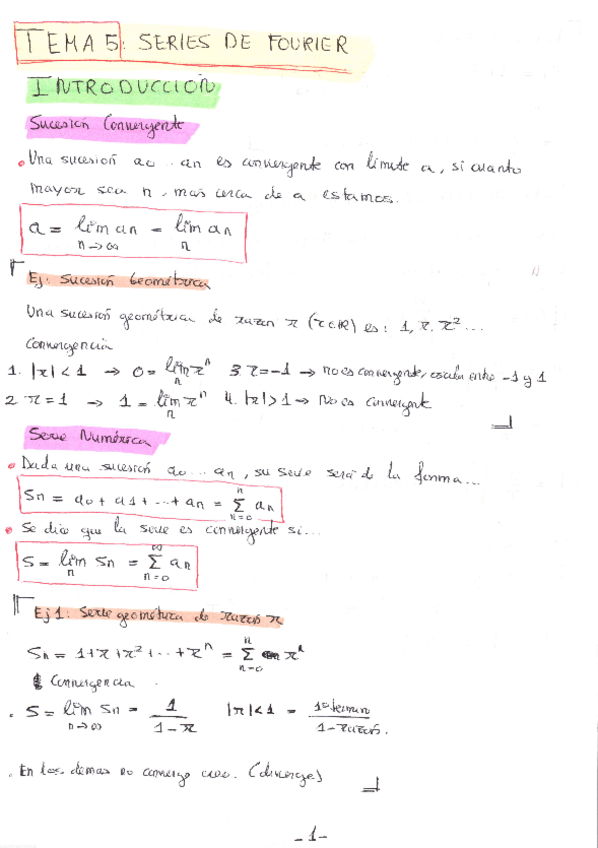 TEMA 5: SERIES DE FOURIER
INTRODUCCIÓN
Sucesión Convergente
Una sucesión a0 ... an es convergente con límite a, si cuanto
mayor sea n, mas cerca de a estamos.
a = lim an = lim an
n→∞ n
Ej: Sucesión Geométrica
Una sucesión geométrica de razon r (r∈R) es: 1, r, r² ...
Convergencia
1. |r| < 1 → 0 = lim rⁿ 3 r = -1 → no es convergente, oscila entre -1 y 1
n
2 r = 1 → 1 = lim rⁿ 4. |r| > 1 → No es convergente
n
Serie Numérica
Dada una sucesión a0 ... an, su serie será de la forma...
Sn = a0 + a1 + ... + an = Σ an
n
n=0
Se dice que la serie es convergente si...
S = lim Sn = Σ an
n ∞
n=0
Ej 1: Serie geométrica de razón r
Sn = 1 + r + r² + ... + rⁿ = Σ rⁿ
n
n=0
Convergencia
S = lim Sn = 1 / 1 - r |r| < 1 = 1º termino / 1 - razón.
n→∞
En los demas no converge (diverge)
- 1 -